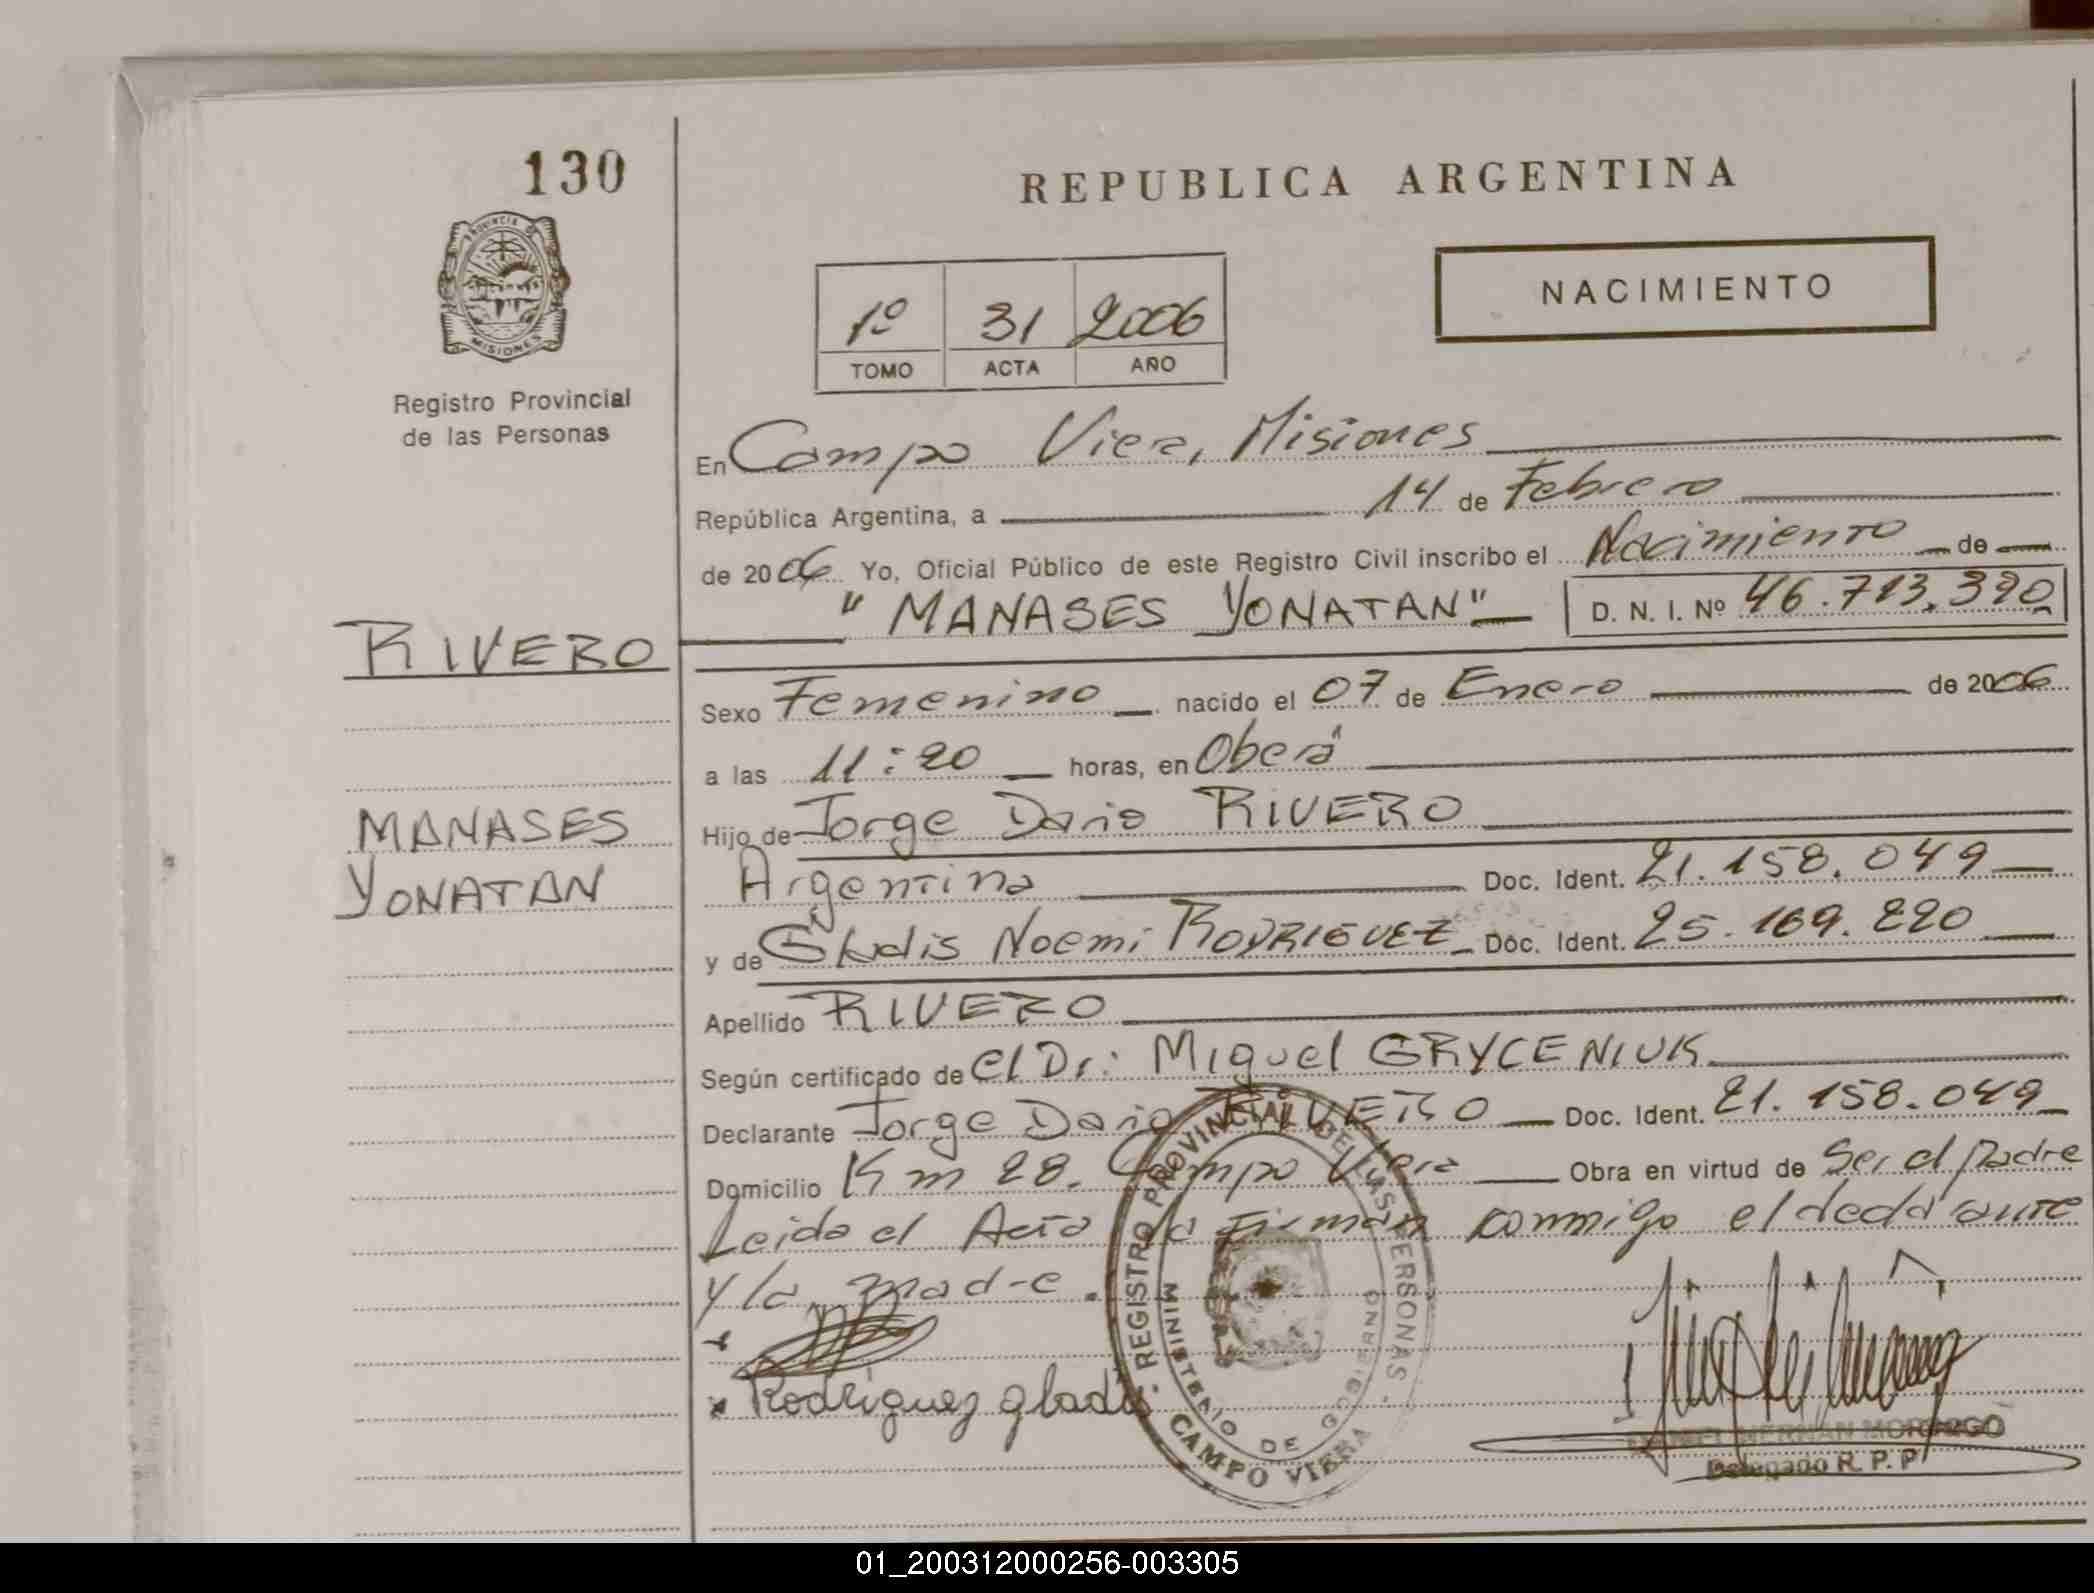 130
REPUBLICA ARGENTINA
PROVINCIA DE
MISIONES
NACIMIENTO
1º 31 2006
TOMO ACTA AÑO
Registro Provincial
de las Personas
En Campo Viera, Misiones
República Argentina, a 14 de Febrero
de 2006 Yo, Oficial Público de este Registro Civil inscribo el Nacimiento de
"MANASES YONATAN" D. N. I. Nº 46.713.390
RIVERO
Sexo Femenino nacido el 07 de Enero de 2006
a las 11:20 horas, en Oberá
MANASES
YONATAN
Hijo de Jorge Dario RIVERO
Argentina Doc. Ident. 21.158.049
y de Gladis Noemi RODRIGUEZ Doc. Ident. 25.169.220
Apellido RIVERO
Según certificado de el Dr: Miguel GRYCENIUK
Declarante Jorge Dario RIVERO Doc. Ident. 21.158.049
Domicilio Km 28. Campo Viera Obra en virtud de Ser el padre
Leida el Acta la Firman conmigo el declarante
y la madre.
Rodriguez gladis
REGISTRO PROVINCIAL DE LAS PERSONAS
MINISTERIO DE GOBIERNO
CAMPO VIERA
HERNAN
Delegado R. P. P.
01_200312000256-003305